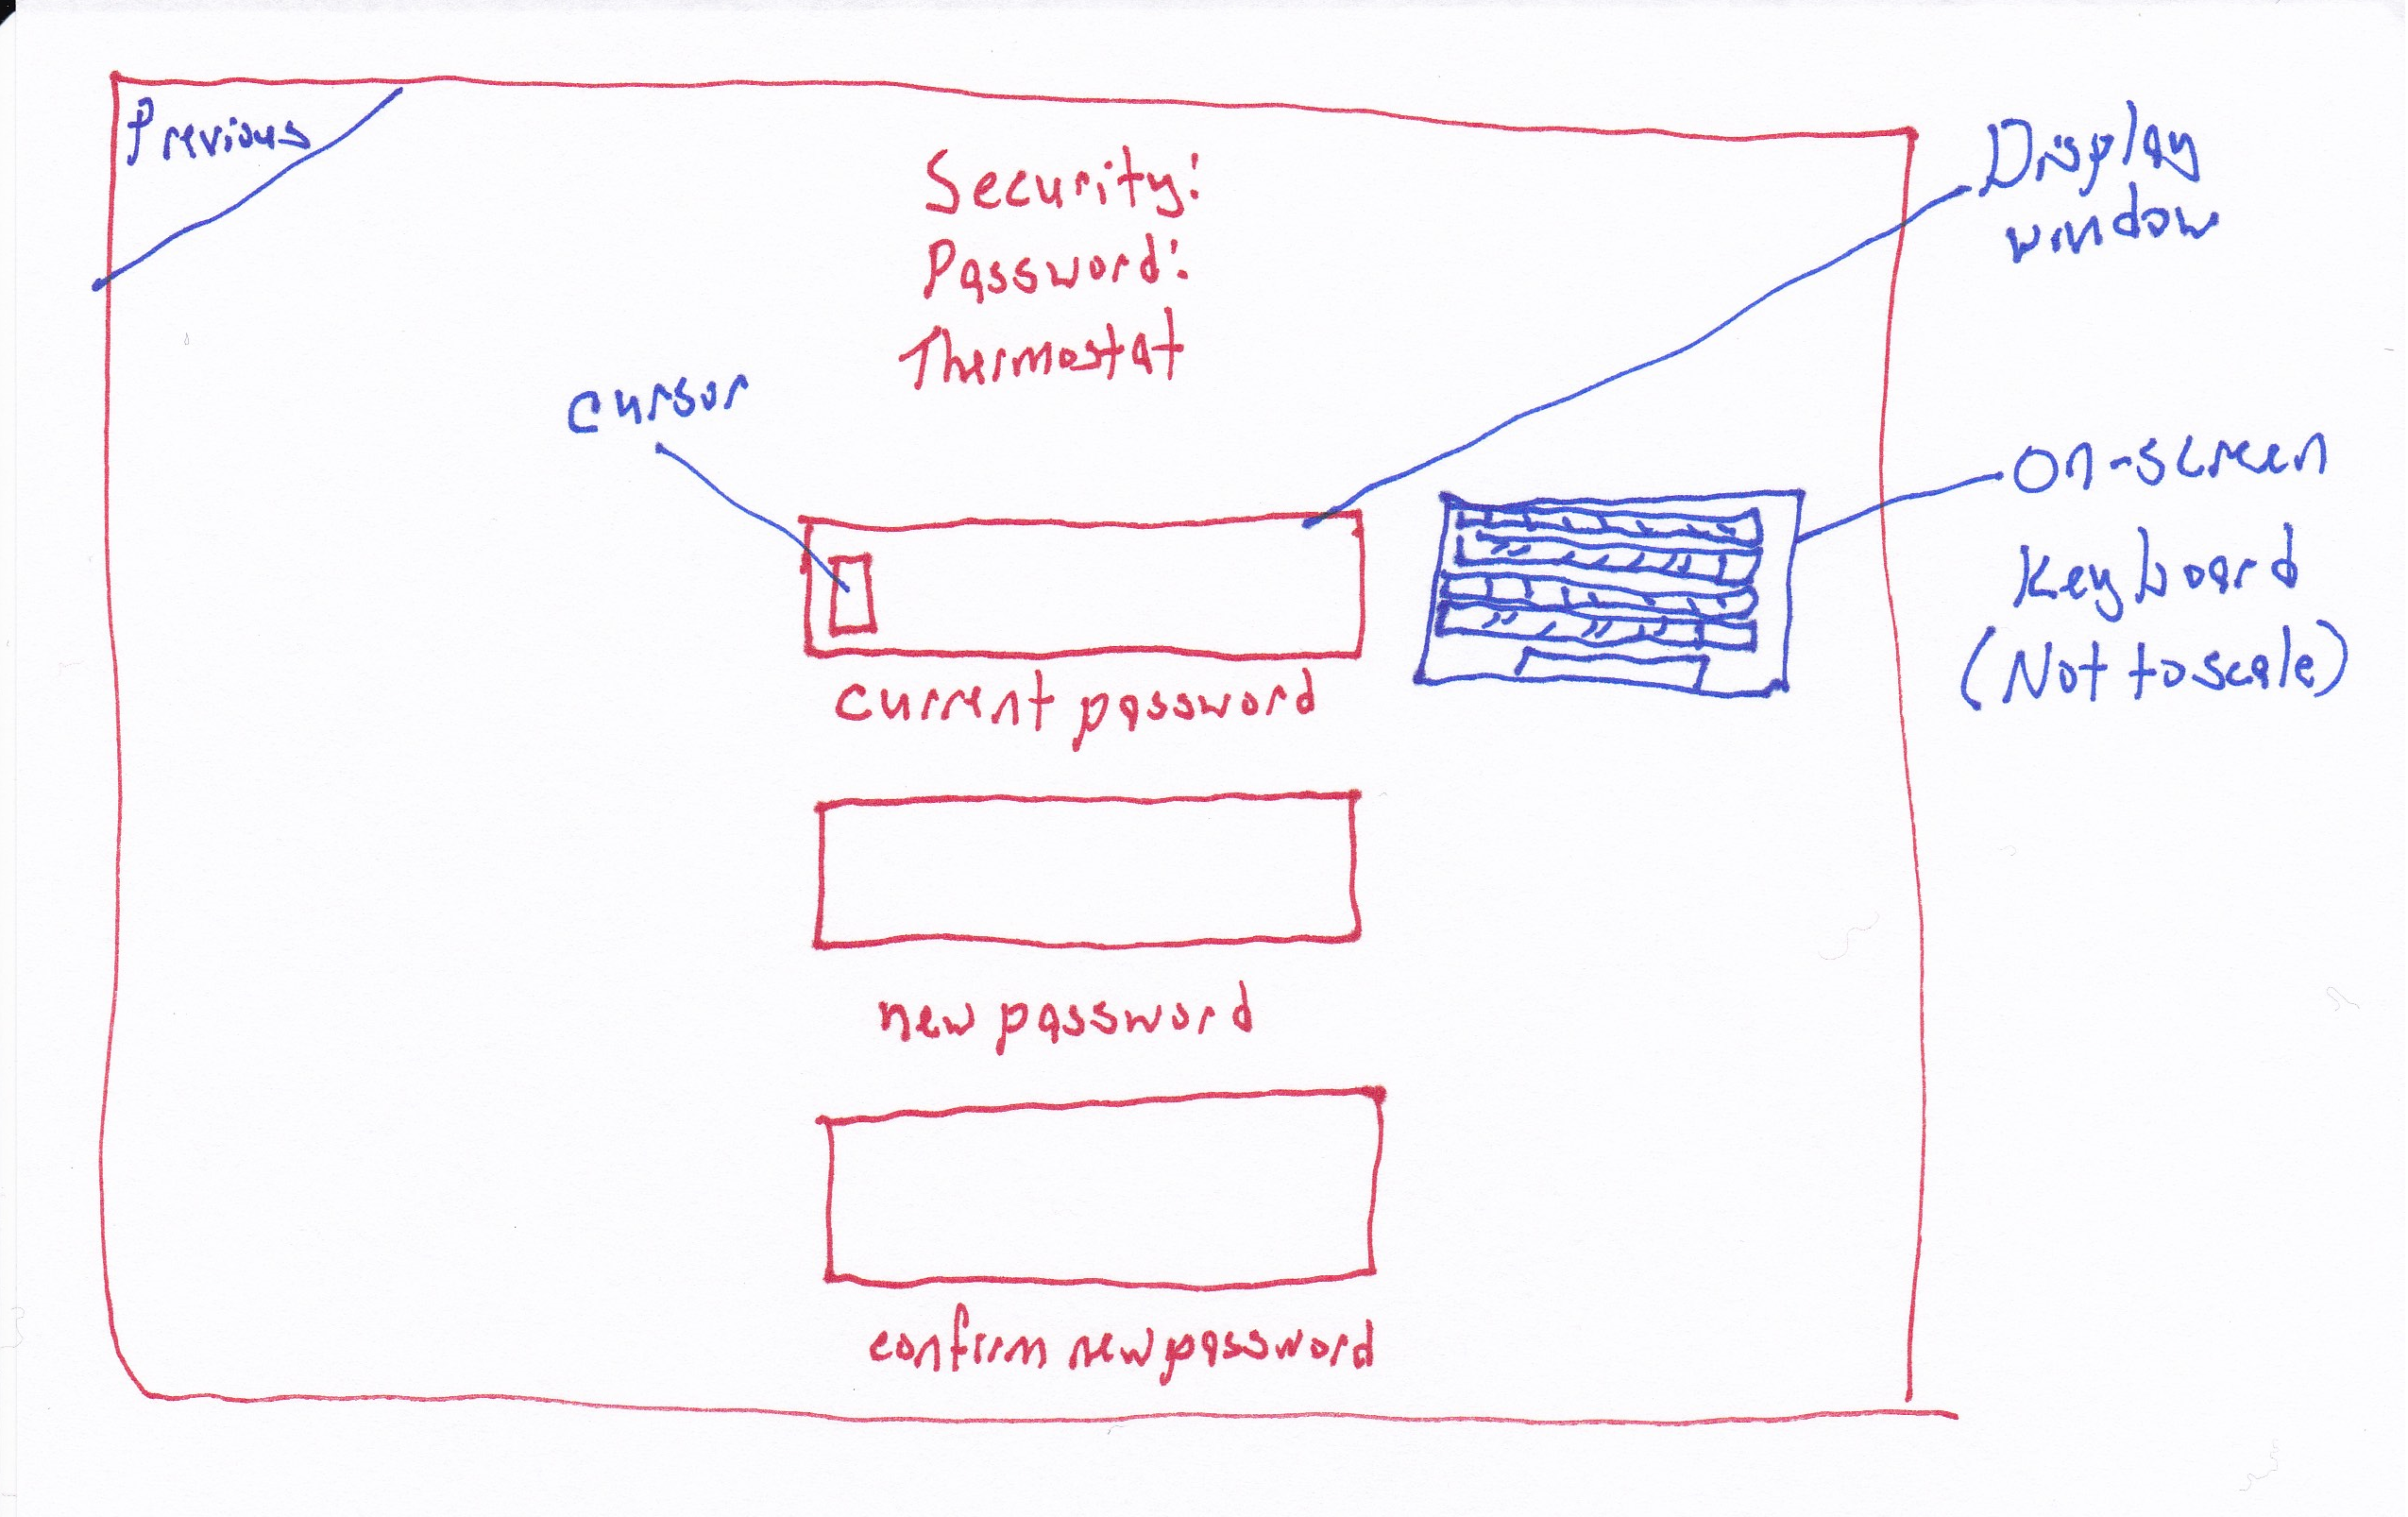 Previous
Security:
Password:
Thermostat
Display
window
cursor
On-screen
Keyboard
(Not to scale)
current password
new password
confirm new password